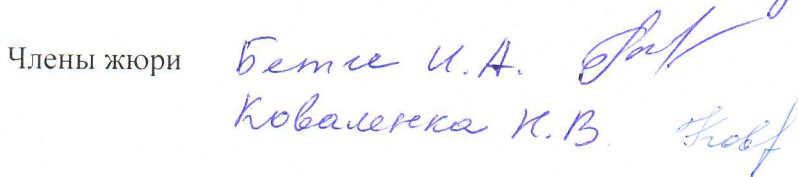 Члены жюри Бетге И.А.
Коваленка Н.В